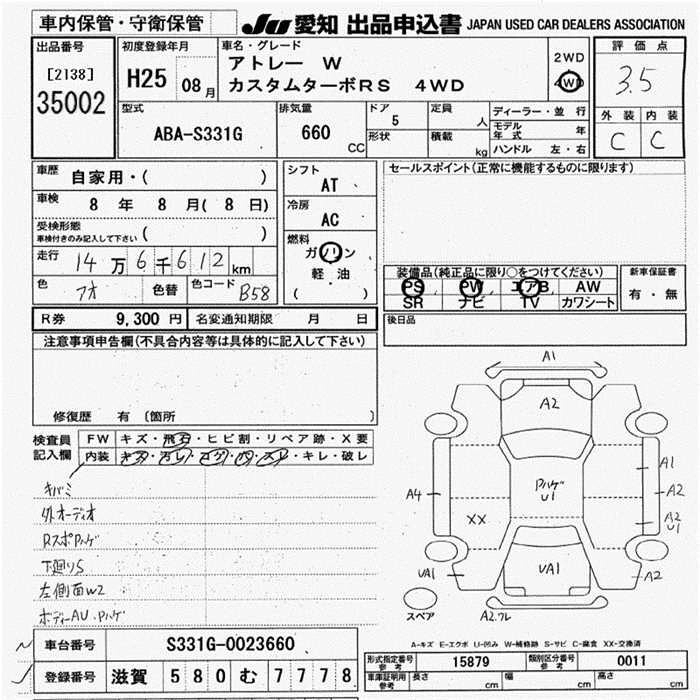 車内保管・守衛保管
JU 愛知 出品申込書 JAPAN USED CAR DEALERS ASSOCIATION
出品番号
[2138]
35002
初度登録年月
H25 08月
車名・グレード
アトレー W
カスタムターボRS 4WD
2WD
4WD
評価点
3.5
外装 内装
C C
型式
ABA-S331G
排気量
660
CC
ドア
5
形状
定員
人
積載
kg
ディーラー・並行
モデル年式 年
ハンドル 左・右
車歴
自家用・( )
車検
8 年 8 月( 8 日)
受検形態
車検付きのみ記入して下さい ( )
走行
14万6千612km
色
アオ
色替
色コード
B58
シフト
AT
冷房
AC
燃料
ガソリン
軽・油
( )
セールスポイント(正常に機能するものに限ります)
装備品(純正品に限り○をつけてください)
PS PW エアB AW
SR ナビ TV カワシート
新車保証書
有・無
後日品
R券 9,300 円
名変通知期限 月 日
注意事項申告欄(不具合内容等は具体的に記入して下さい)
修復歴 有 〔箇所 〕
検査員記入欄
FW キズ・飛石・ヒビ割・リペア跡・X要
内装 キズ・汚レ・コゲ・穴・スレ・キレ・破レ
キバミ
外オーディオ
RスポPハゲ
下廻りS
左側面W2
ボディーAU.Pハゲ
A1
A2
Pハゲ
U1
A4
XX
A1
A2
A2
U1
UA1
UA1
A2
スペア
A2.ワレ
A-キズ E-エクボ U-凹み W-補修跡 S-サビ C-腐食 XX-交換済
車台番号
S331G-0023660
登録番号
滋賀 580 む 7778
形式指定番号
参考
15879
類別区分番号
参考
0011
車庫証明用
参考
長さ cm
幅 cm
高さ cm